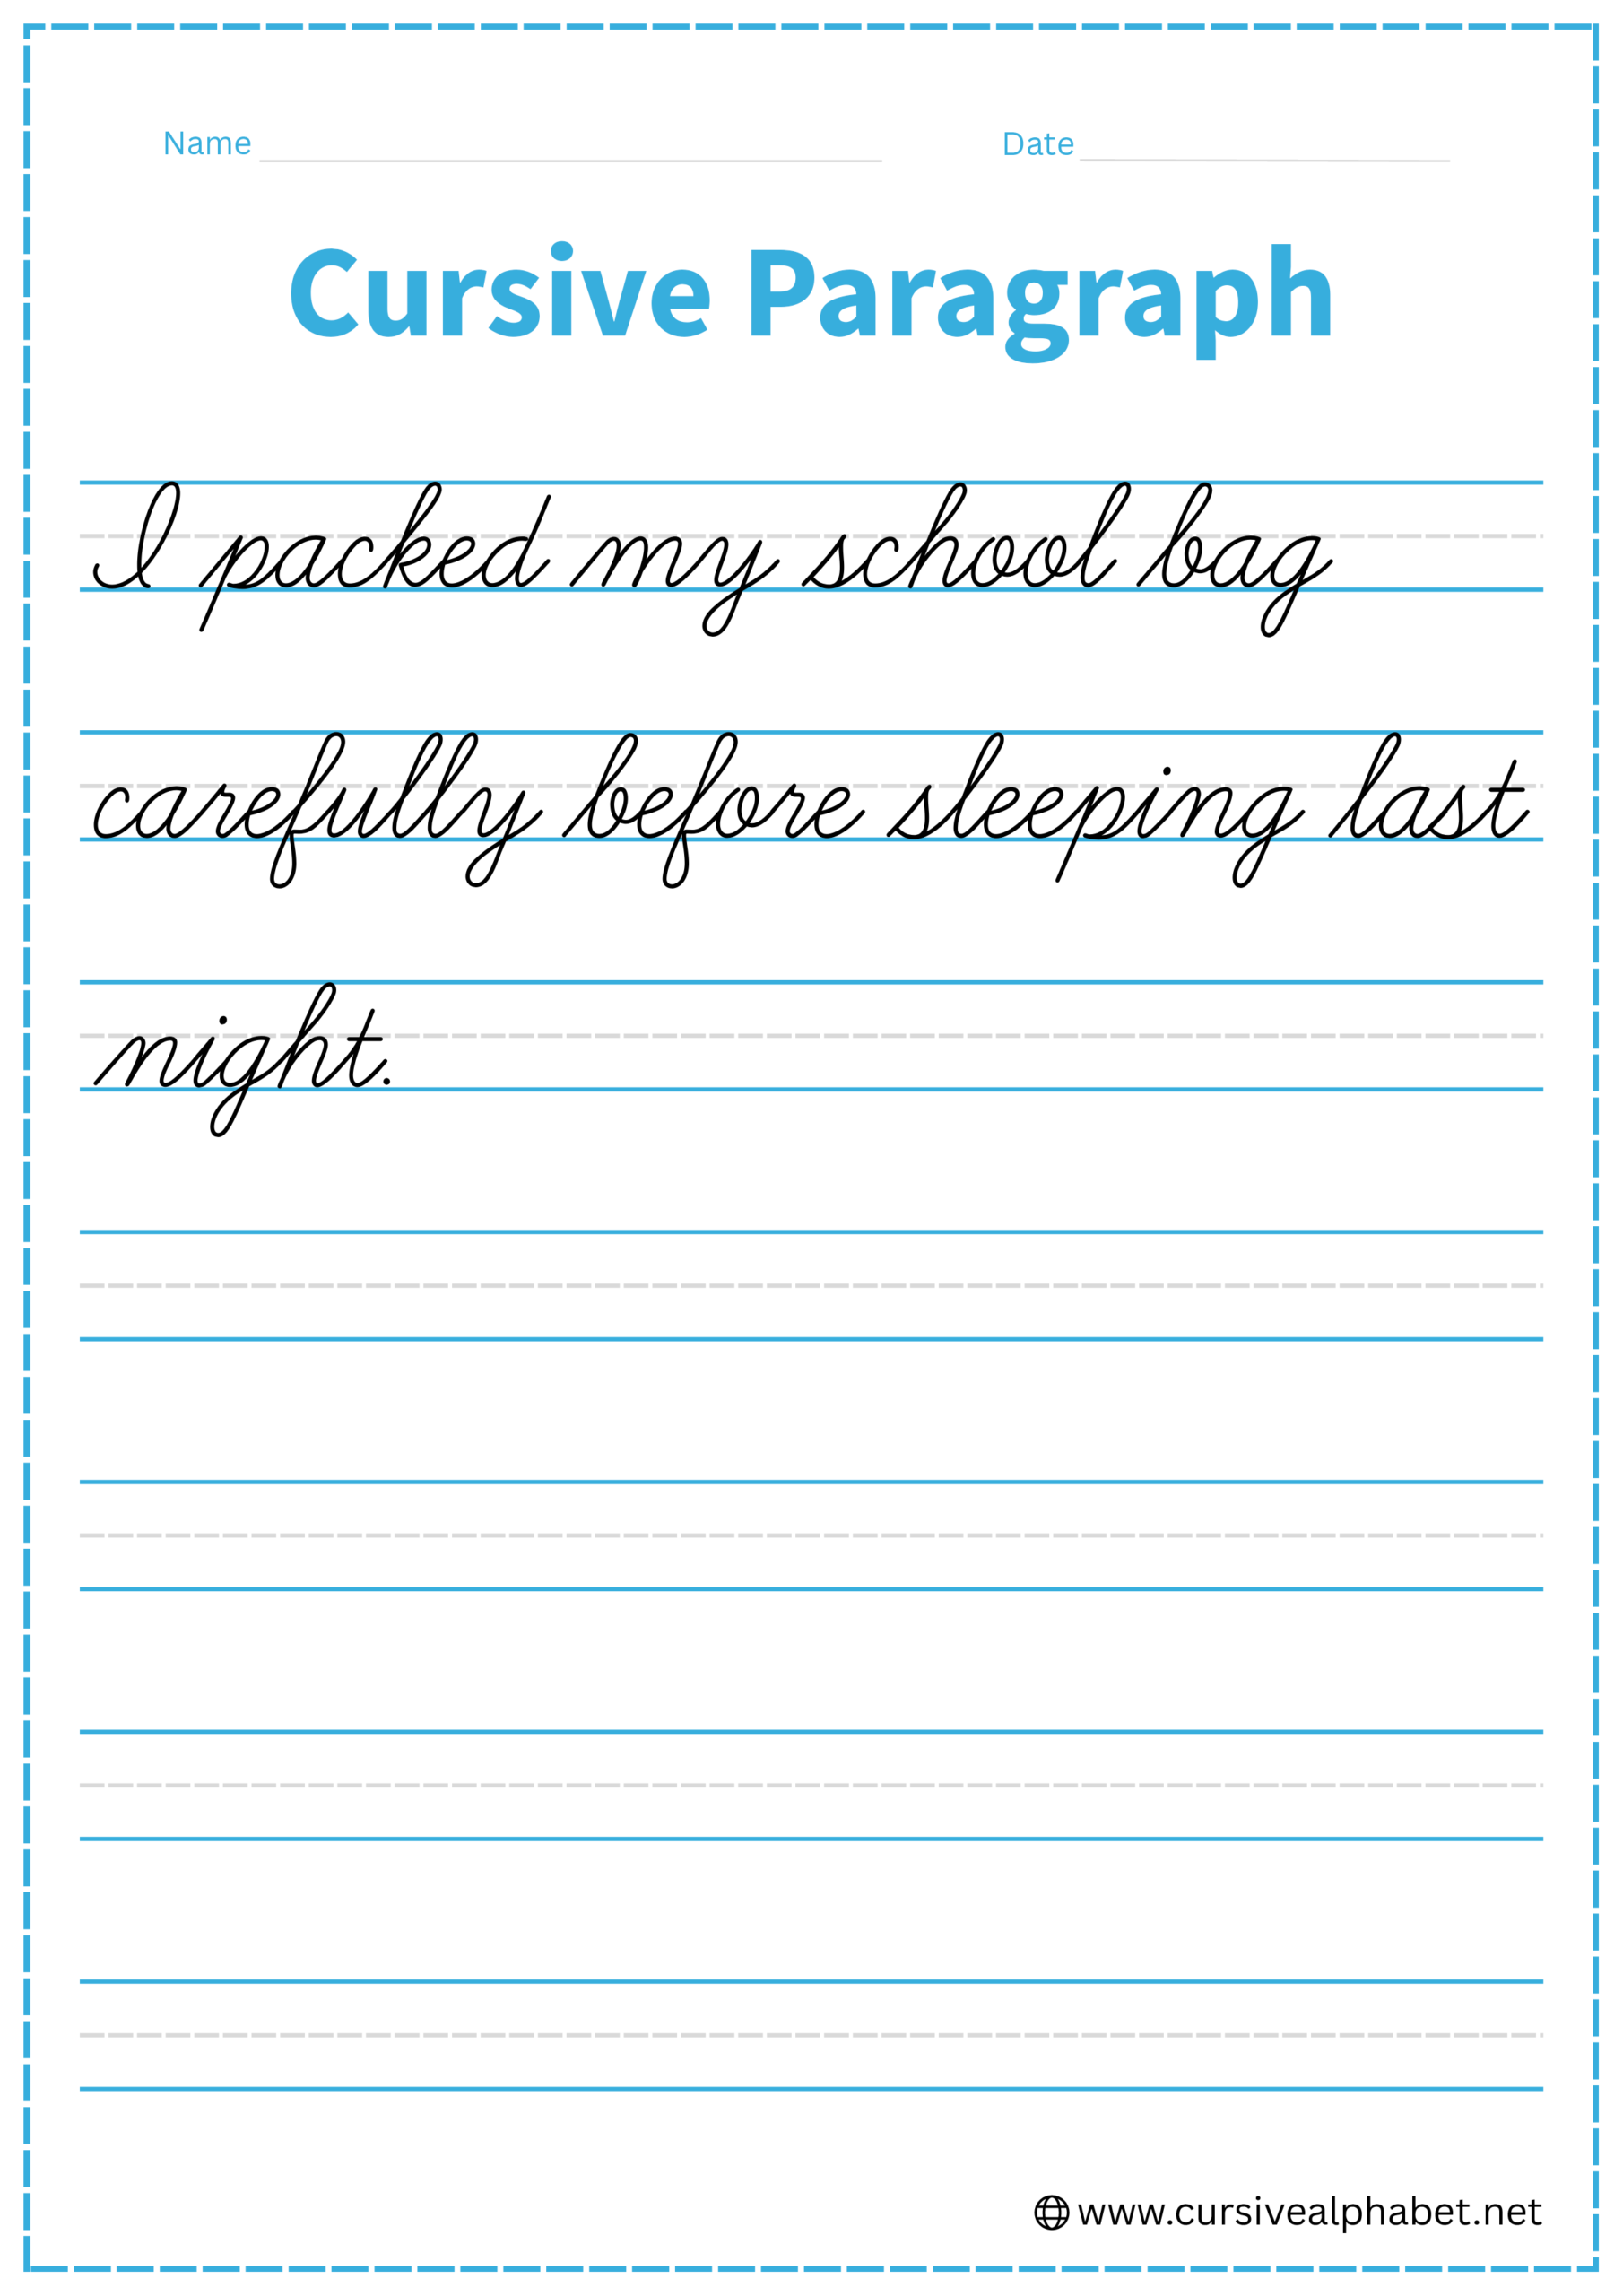 Name Date
Cursive Paragraph
I packed my school bag
carefully before sleeping last
night.
www.cursivealphabet.net